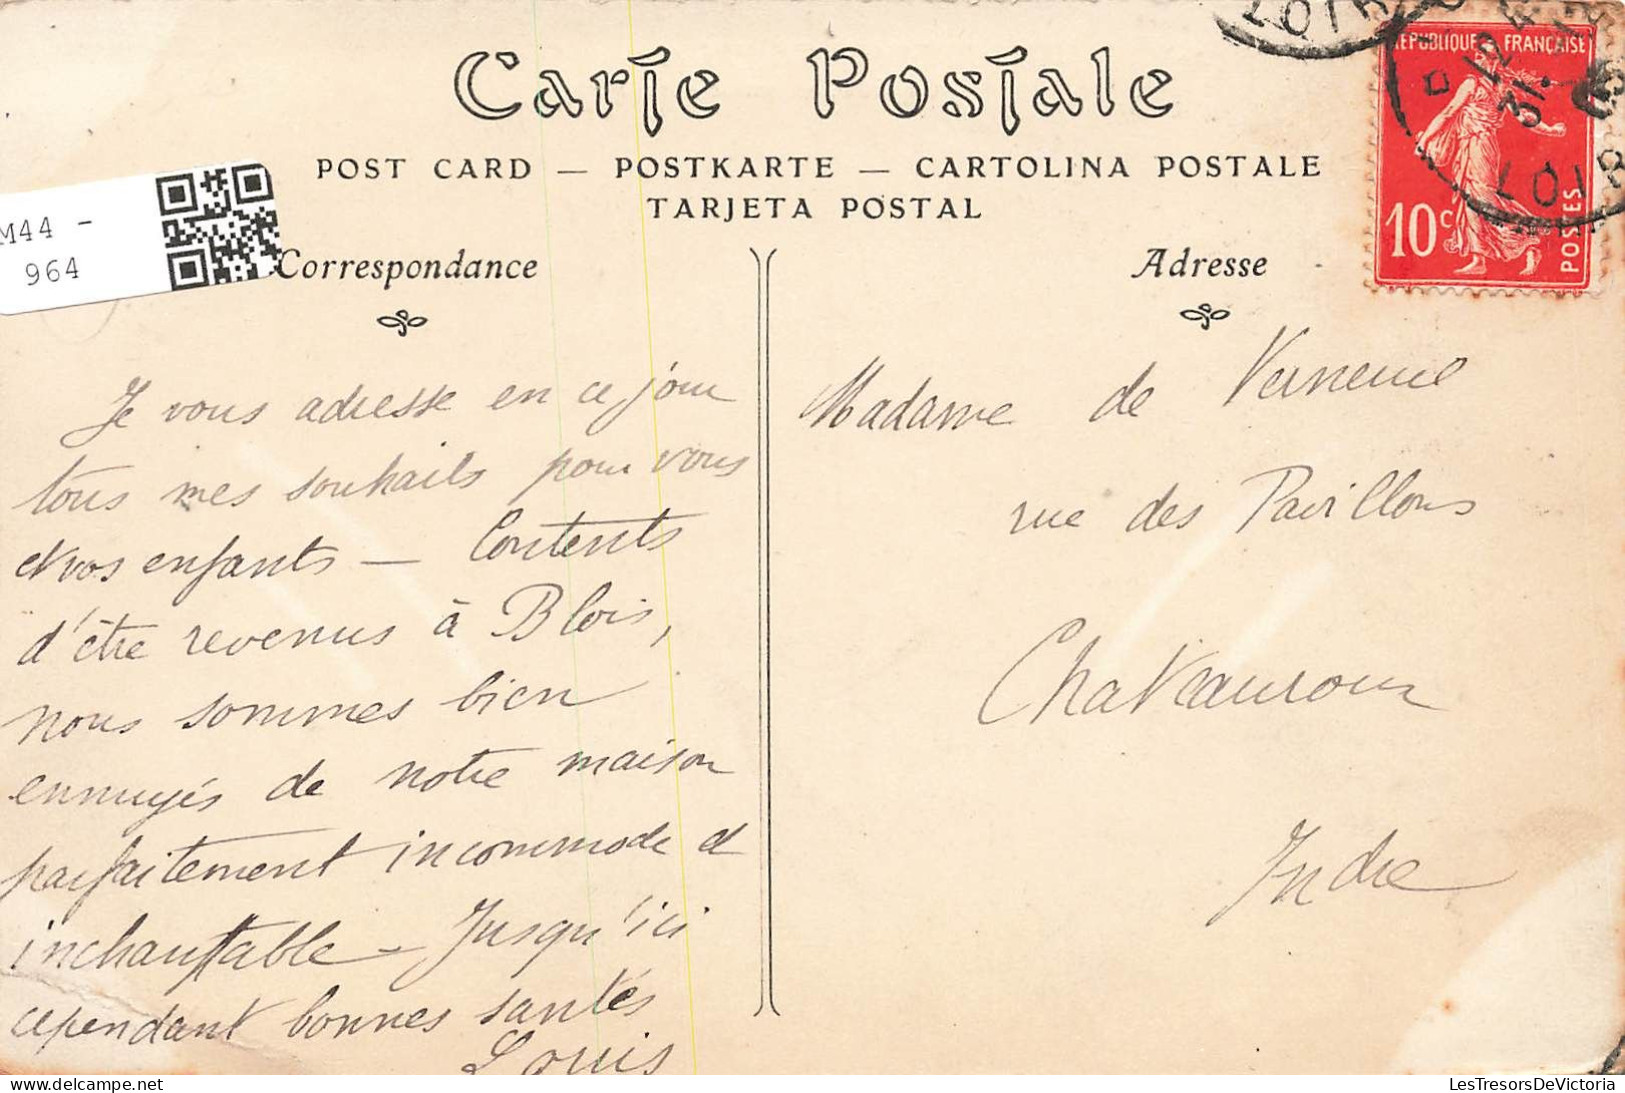 Carte Postale
POST CARD — POSTKARTE — CARTOLINA POSTALE
TARJETA POSTAL
M44 -
964
Correspondance
Adresse
RÉPUBLIQUE FRANÇAISE
10c
POSTES
12
31
LOIR
LOIR
Je vous adresse en ce jour
tous mes souhaits pour vous
et vos enfants — Contents
d'être revenus à Blois,
nous sommes bien
ennuyés de notre maison
parfaitement incommode et
inchauffable — Jusqu'ici
cependant bonnes santés
Louis
Madame de Verneuil
rue des Pavillons
Chateauroux
Indre
LesTresorsDeVictoria